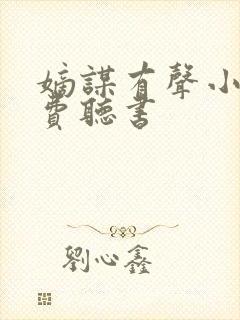 嫡謀有聲小
費聽書
劉心鑫